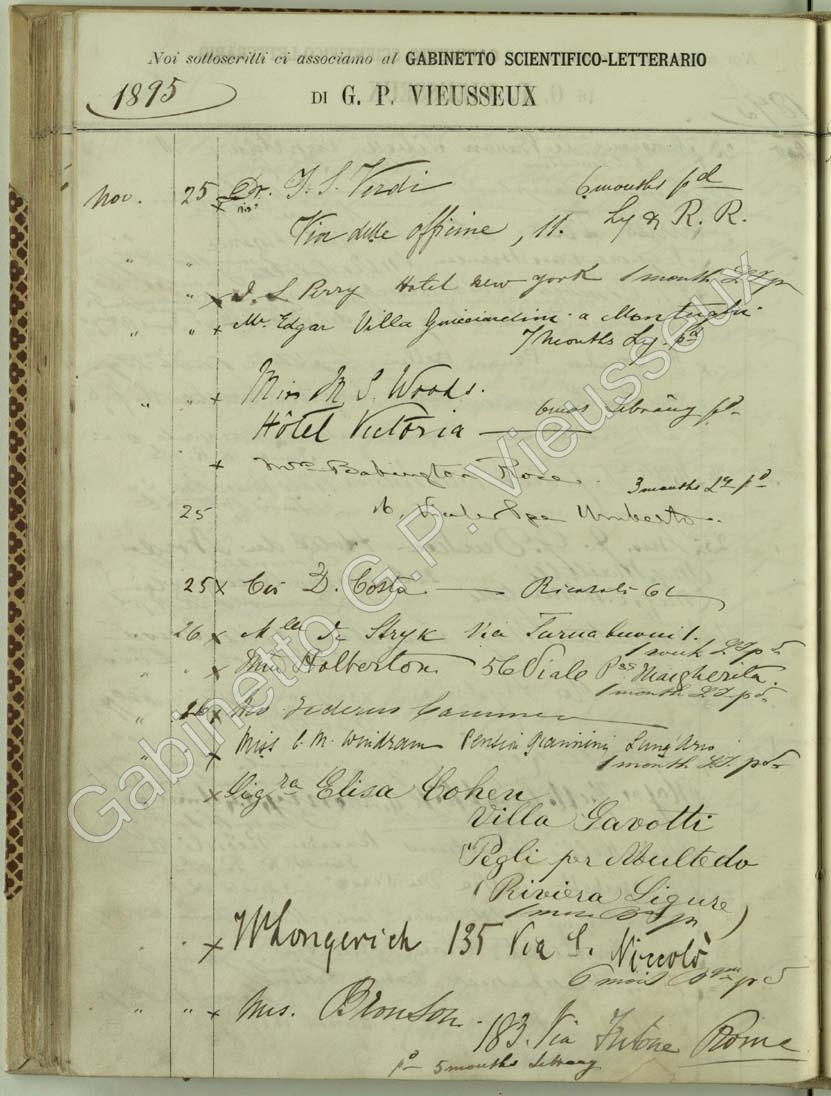 Noi sottoscritti ci associamo al GABINETTO SCIENTIFICO-LETTERARIO
1895
DI G. P. VIEUSSEUX
Nov. 25 x Dr. T. S. Verdi 6 mouths pd
Via delle officine, 11. Ly & R. R.
" " x S Perry Hotel New York 1 month
" " x Mr. Edgar Villa Guicciardini a Montughi
7 months Ly. pd
" " x Miss M. S. Woods.
Hôtel Victoria — 6 mos Library pd
x Mrs Babington
3 months Ly pd
25 Umberto.
25 x D. Costa — Ricasoli 61
26 x Mlle de Stryk Via Turnabuoni 1.
1 month
" x Holberton 56 Viale Pss Margherita.
1 month
" 26 x
" " x Miss C. M. Windram Pension Giannini Lung'Arno
1 month
" x Sigra Elisa Cohen
Villa Gavotti
Pegli per Multedo
(Riviera Ligure)
" x W Longerich 135 Via S. Niccolò
6 mois
" " x Mrs. Bronson.
183. Via Rome
pd 5 months Library
Gabinetto G. P. Vieusseux